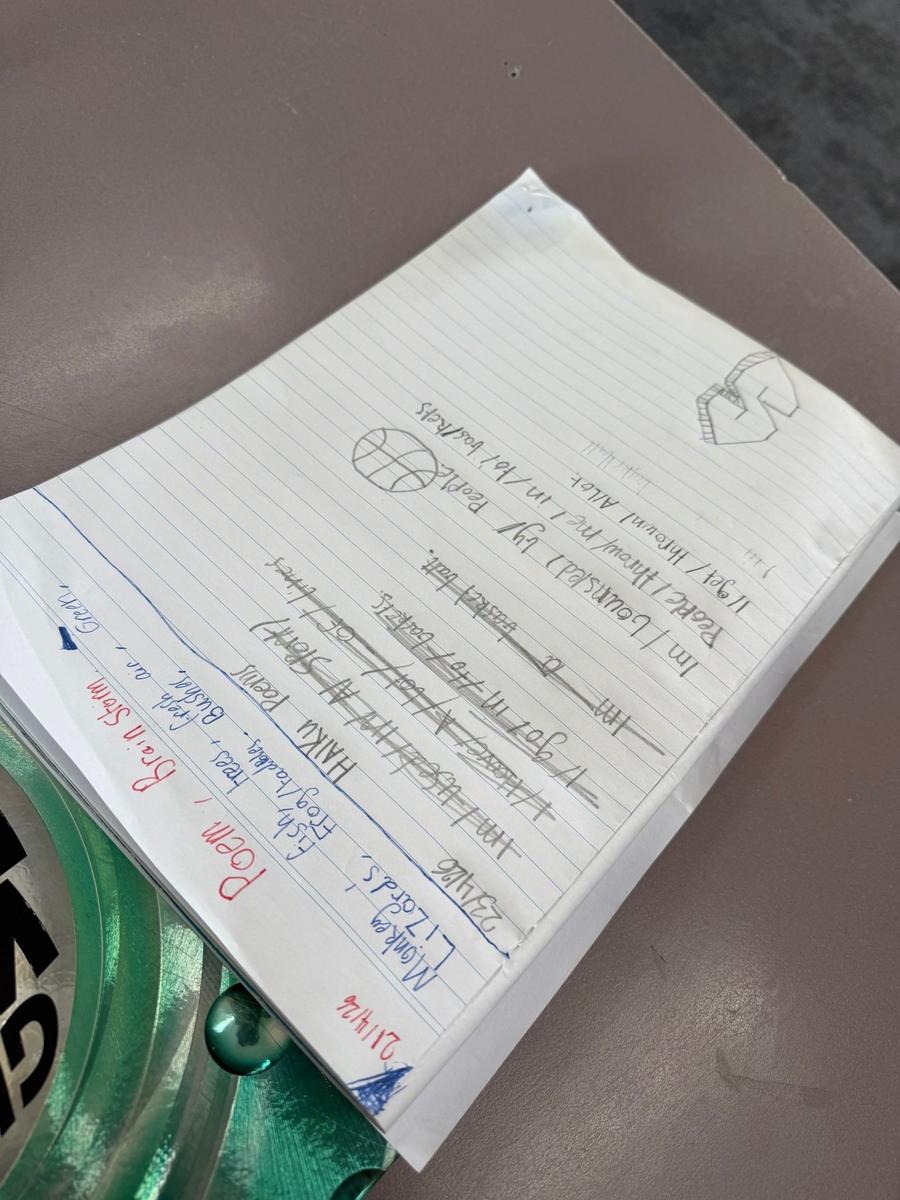 21/4/26
Poem / Brain Storm
Monkey fish, trees, fresh air, Green,
LiZards, Frog/tadples. Bushes,
23/4/26 HAIKU Poems
Im / Used / IN / A / Sport /
I / Have / A / Lot / OF / Lines
I / got / in / to / baskets
Im a basket ball.
Im / bouns(ed) by / People
People / throw / me / in / to / baskets
I / get / thrown / Allot.